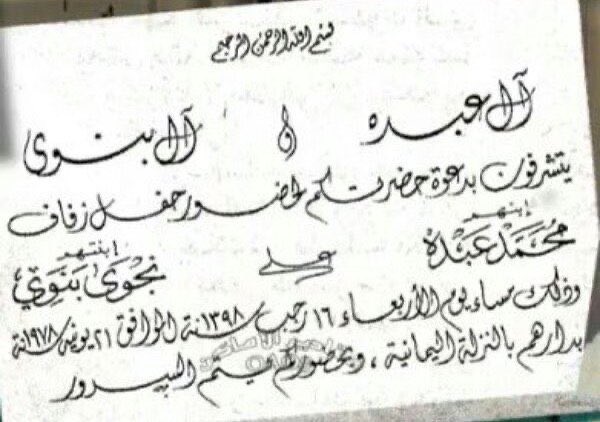 بسم الله الرحمن الرحيم
آل عبده و آل بنوي
يتشرفون بدعوة حضرتكم لحضور حفل زفاف
إبنهم إبنتهم
محمد عبده على نجوى بنوي
وذلك مساء يوم الأربعاء ١٦ رجب سنة ١٣٩٨ الموافق ٢١ يونيه سنة ١٩٧٨
بدارهم بالنزلة اليمانية ، وبحضوركم يتم السرور